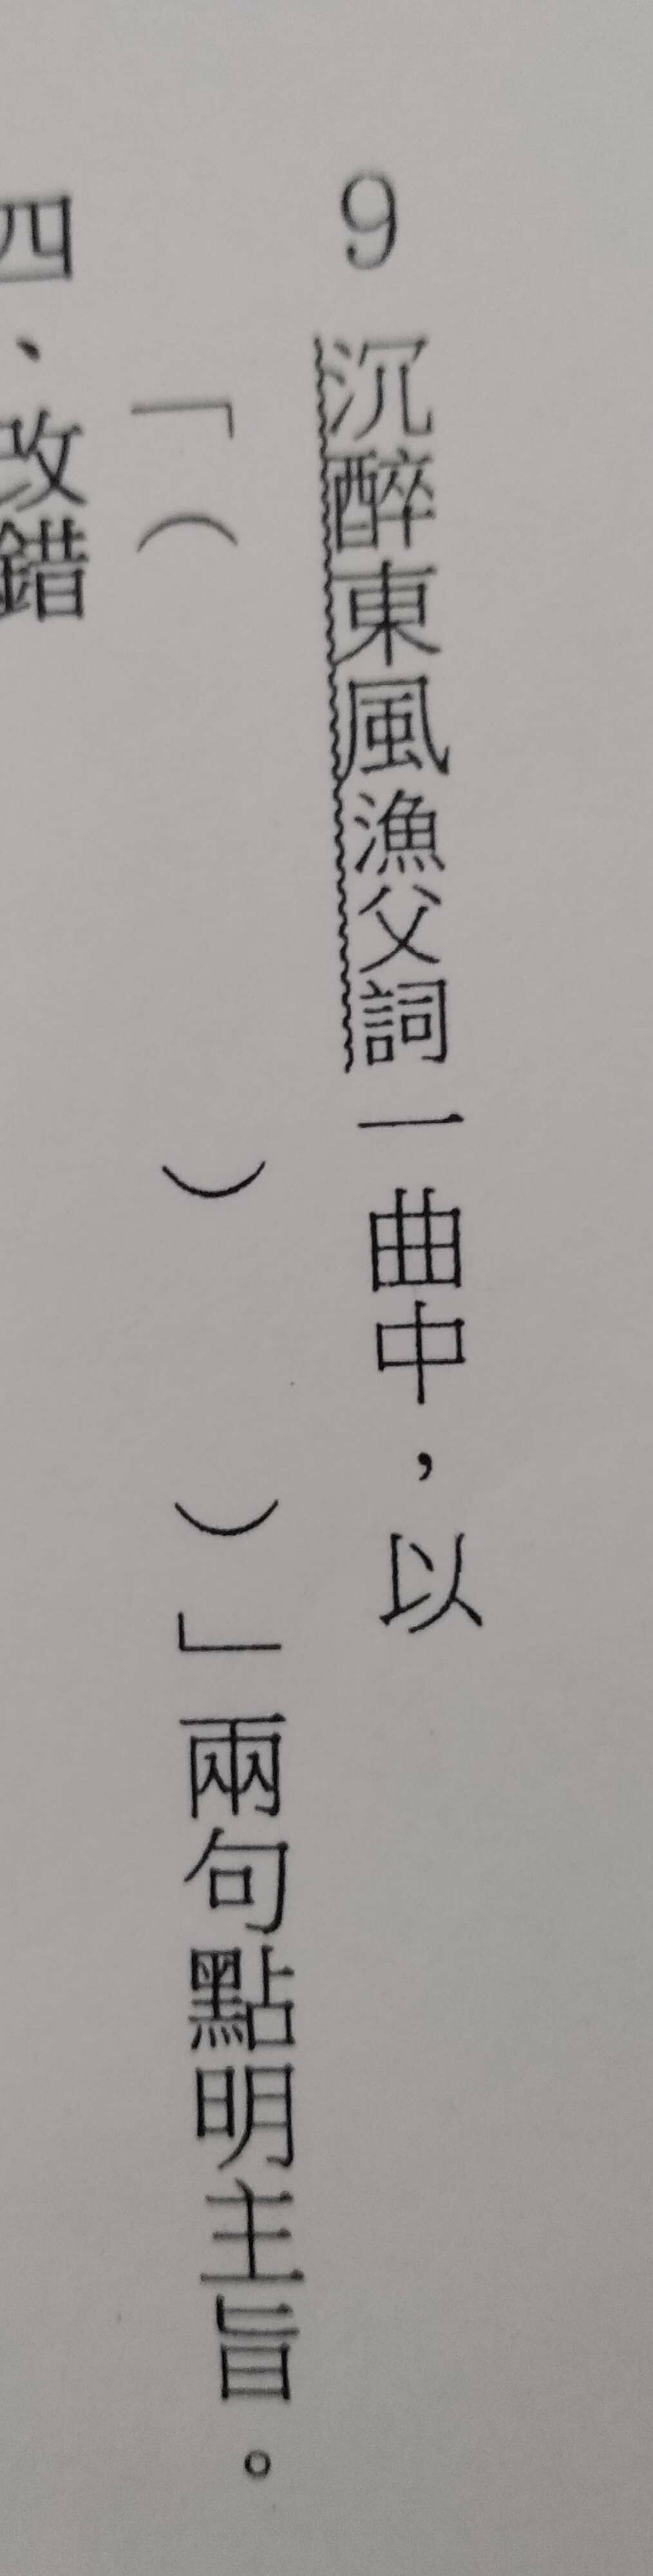 9 沉醉東風漁父詞一曲中，以
「（　　　））」兩句點明主旨。
四、改錯